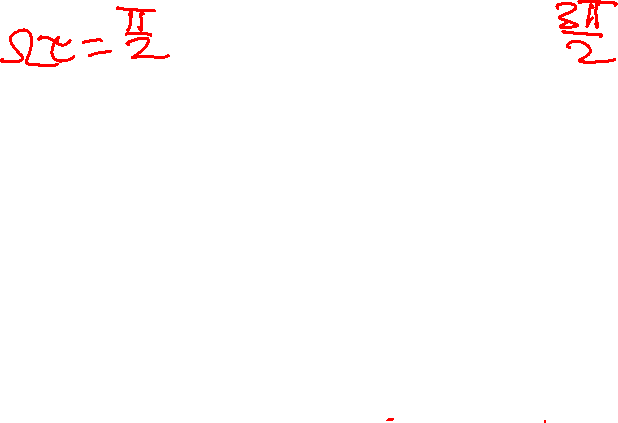 Ωτ = π/2 3π/2